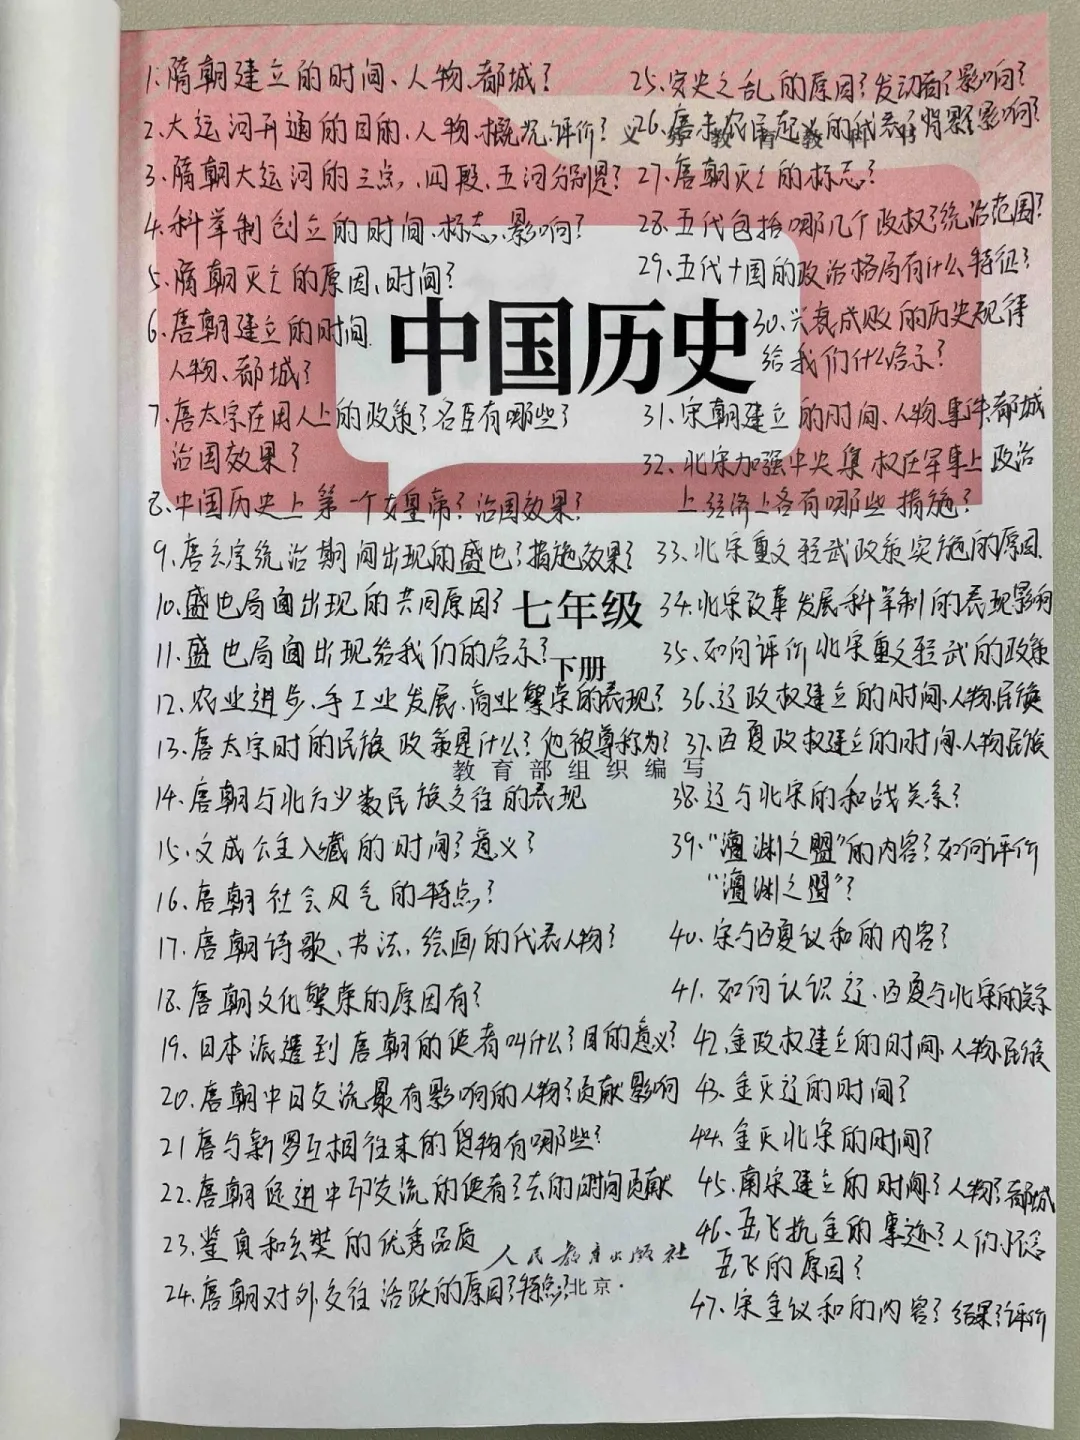 1、隋朝建立的时间、人物、都城?
2、大运河开通的目的、人物、概况、评价?
3、隋朝大运河的三点、四段、五河分别是?
4、科举制创立的时间、标志、影响?
5、隋朝灭亡的原因、时间?
6、唐朝建立的时间
人物、都城?
7、唐太宗在用人上的政策?名臣有哪些?
治国效果?
8、中国历史上第一个女皇帝?治国效果?
9、唐玄宗统治期间出现的盛世?措施效果?
10、盛世局面出现的共同原因?
11、盛世局面出现给我们的启示?
12、农业进步、手工业发展、商业繁荣的表现?
13、唐太宗时的民族政策是什么?他被尊称为?
14、唐朝与北方少数民族交往的表现
15、文成公主入藏的时间?意义?
16、唐朝社会风气的特点?
17、唐朝诗歌、书法、绘画的代表人物?
18、唐朝文化繁荣的原因有?
19、日本派遣到唐朝的使者叫什么?目的意义?
20、唐朝中日交流最有影响的人物?贡献影响
21 唐与新罗互相往来的货物有哪些?
22、唐朝促进中印交流的使者?去的时间贡献
23、鉴真和玄奘的优秀品质
24、唐朝对外交往活跃的原因?特点?
25、安史之乱的原因?发动者?影响?
26、唐末农民起义的代表?背景?影响?
27、唐朝灭亡的标志?
28、五代包括哪几个政权?统治范围?
29、五代十国的政治格局有什么特征?
30、兴衰成败的历史规律
给我们什么启示?
31、宋朝建立的时间、人物、事件、都城
32、北宋加强中央集权在军事上政治
上、经济上各有哪些措施?
33、北宋重文轻武政策实施的原因
34、北宋改革发展科举制的表现影响
35、如何评价北宋重文轻武的政策
36、辽政权建立的时间、人物、民族
37、西夏政权建立的时间、人物民族
38、辽与北宋的和战关系?
39、“澶渊之盟”的内容?如何评价
“澶渊之盟”?
40、宋与西夏议和的内容?
41、如何认识辽、西夏与北宋的关系
42、金政权建立的时间、人物、民族
43、金灭辽的时间?
44、金灭北宋的时间?
45、南宋建立的时间?人物?都城
46、岳飞抗金的事迹?人们怀念
岳飞的原因?
47、宋金议和的内容?结果?评价
中国历史
七年级
下册
教育部组织编写
人民教育出版社
·北京·